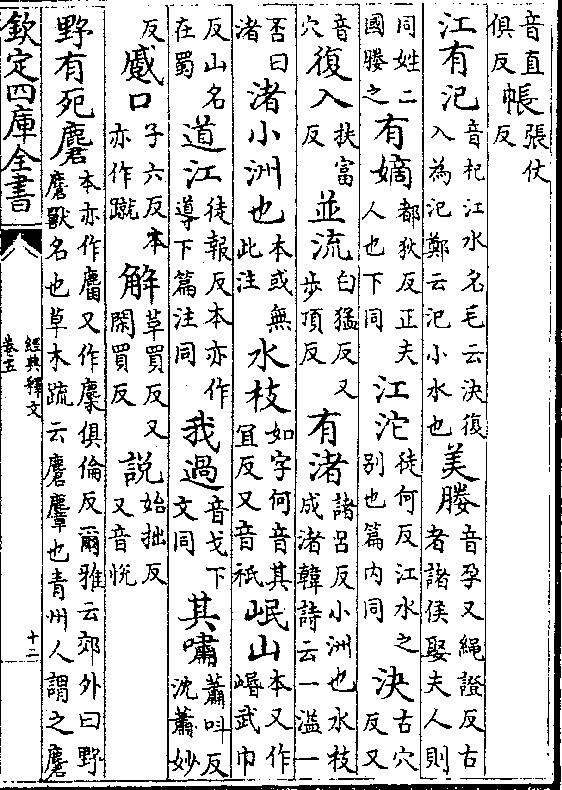 音直俱反帳張仗反
江有汜音杞江水名毛云決復入為汜鄭云汜小水也美媵音孕又繩證反古者諸侯娶夫人則
同姓二國媵之有嫡都狄反正夫人也下同江沱徒何反江水之别也篇内同決古穴反又
音穴復入扶富反並流白猛反又步頂反有渚諸呂反小洲也水枝成渚韓詩云一溢一
否曰渚渚小洲也本或無此注水枝如字何音其宜反又音祇岷山本又作㟭武巾
反山名在蜀道江徒報反本亦作導下篇注同我過音戈下文同其嘯蕭叫反沈蕭妙
反慼口子六反本亦作蹴解草買反又閑買反説始拙反又音悦
野有死麕本亦作麏又作麇俱倫反爾雅云郊外曰野麕獸名也草木疏云麕麞也青州人謂之麕
欽定四庫全書
經典釋文
卷五
十二